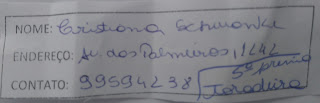 NOME: Cristiana Schwonke
ENDEREÇO: Av. dos Palmeiros, 1242
CONTATO: 99594238
5º premio
Toradeira